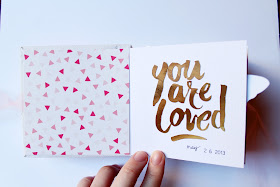 you
are
loved
may 26 2013